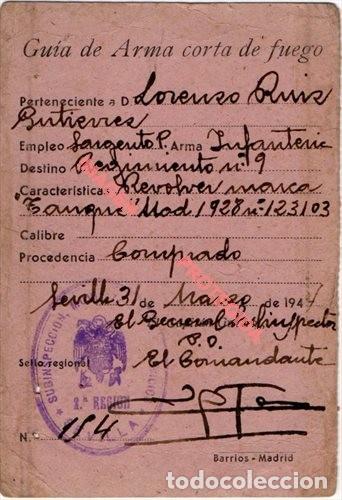 Guía de Arma corta de fuego
Perteneciente a D Lorenzo Ruiz
Gutierres
Empleo Sargento P. Arma Infanteria
Destino Regimiento nº 9
Características Revolver marca
"Tanque" Mod. 1928 nº 123103
Calibre
Procedencia Comprado
Sevilla 31 de Marzo de 194
El General Subinspector
P.O.
Sello regional El Comandante
SUBINSPECCION
2.ª REGION
SEVILLA
N.º 154
Barrios - Madrid
todocoleccion.net